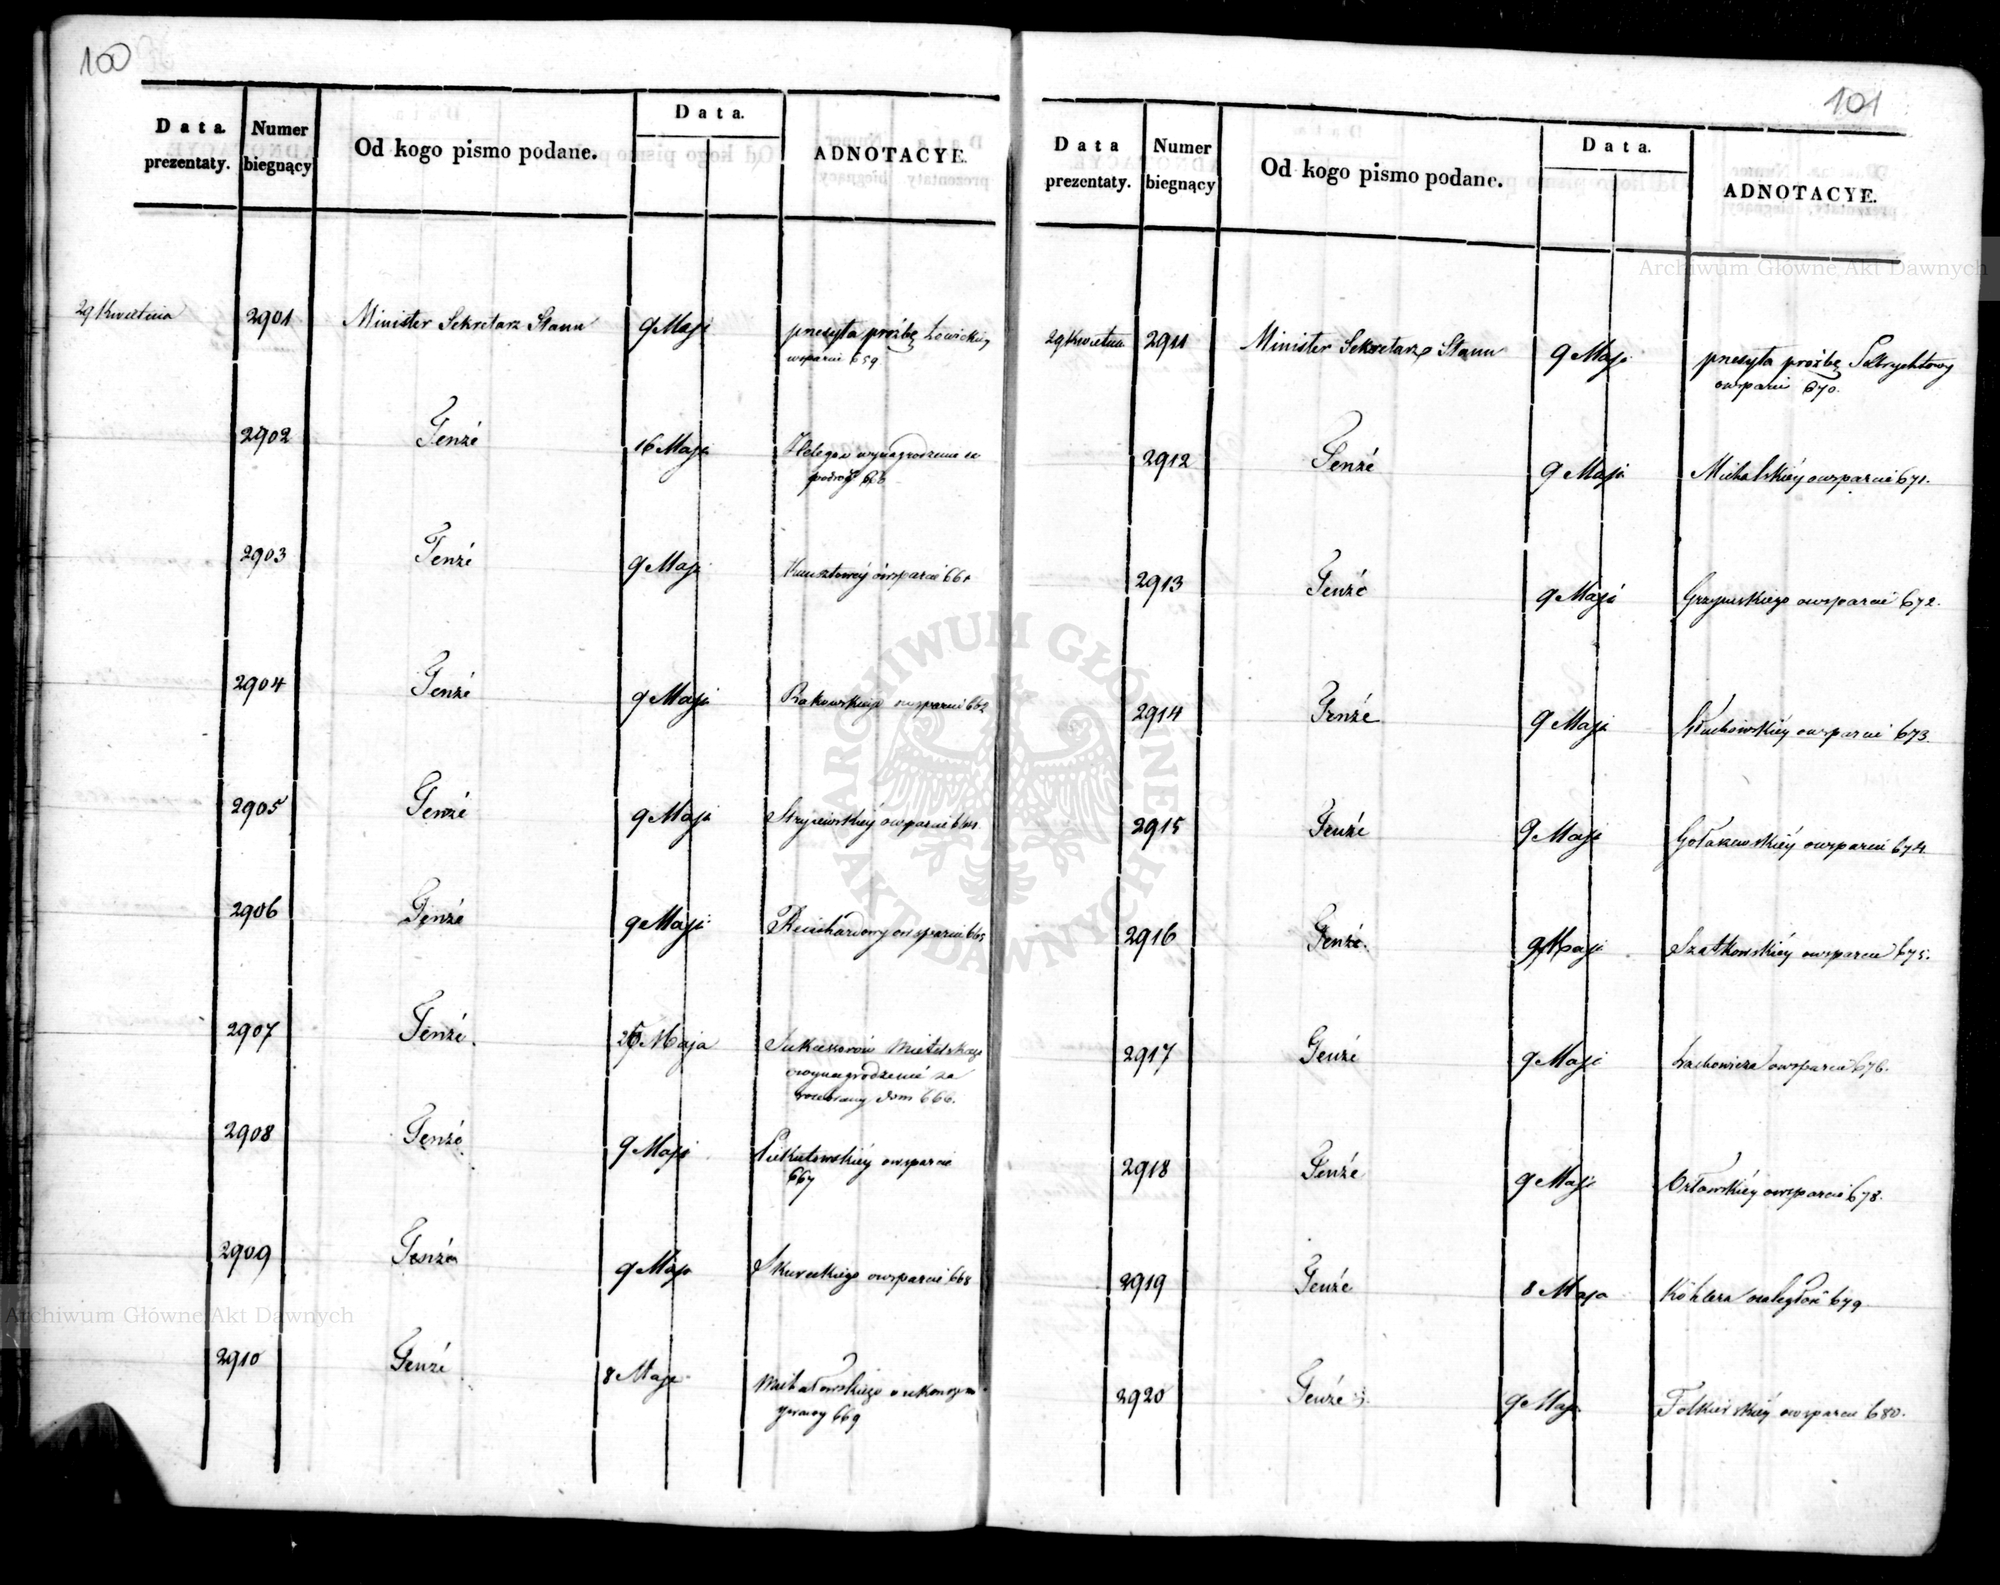 100
Data prezentaty. Numer biegnący Od kogo pismo podane. Data. ADNOTACYE.
29 Kwietnia 2901 Minister Sekretarz Stanu 9 Maja przesyła prożbę Łowickiéy
wsparcie 659.
2902 Tenże 16 Maja wynagrodzenie za
podróż 660
2903 Tenże 9 Maja owsparcie 661
2904 Tenże 9 Maja Rakowskiego owsparcie 662
2905 Tenże 9 Maja owsparcie
2906 Tenże 9 Maja owsparcie 665
2907 Tenże 25 Maja Sukcessorów
owynagrodzenie za
rozebrany dom 666.
2908 Tenże 9 Maja Piekutowskiéy owsparcie
667
2909 Tenże 9 Maja owsparcie 668
2910 Tenże 8 Maja Michałowskiego
669
101
Data prezentaty. Numer biegnący Od kogo pismo podane. Data. ADNOTACYE.
29 Kwietnia 2911 Minister Sekretarz Stanu 9 Maja przesyła prożbę
owsparcie 670.
2912 Tenże 9 Maja Michalskiéy owsparcie 671.
2913 Tenże 9 Maja owsparcie 672.
2914 Tenże 9 Maja Głuchowskiéy owsparcie 673.
2915 Tenże 9 Maja owsparcie 674.
2916 Tenże 9 Maja Szatkowskiéy owsparcie 675.
2917 Tenże 9 Maja Lachowicza owsparcie 676.
2918 Tenże 9 Maja Orłowskiéy owsparcie 678.
2919 Tenże 8 Maja Köhlera zaległość 679.
2920 Tenże 9 Maja Folkierskiéy owsparcie 680.
Archiwum Główne Akt Dawnych
ARCHIWUM GŁÓWNE AKT DAWNYCH
Archiwum Główne Akt Dawnych